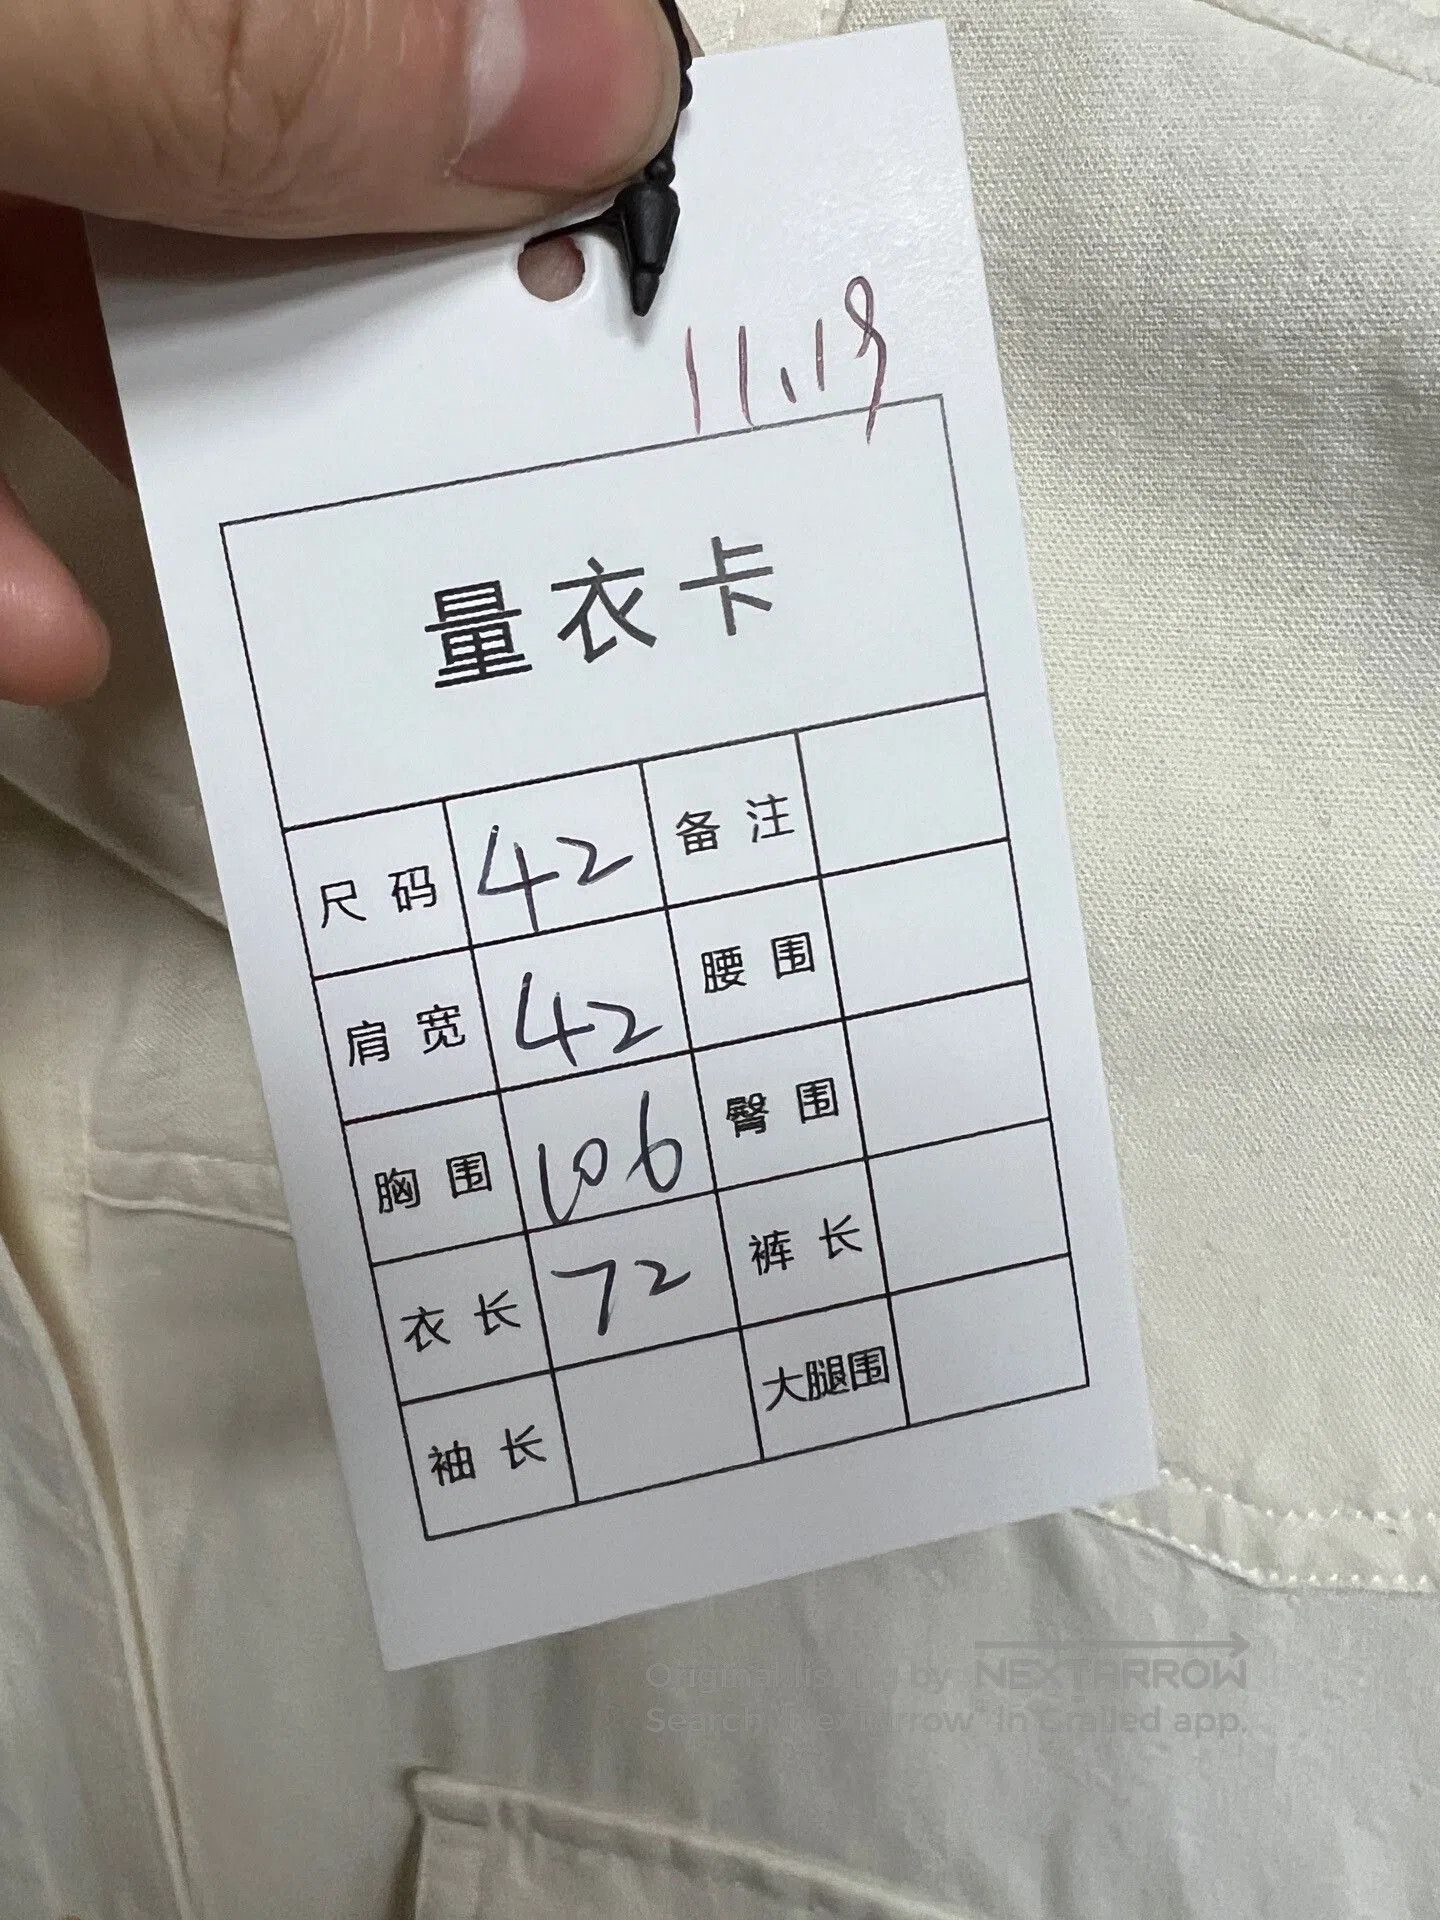 11.19
量衣卡
尺码 42 备注
肩宽 42 腰围
胸围 106 臀围
衣长 72 裤长
袖长 大腿围
Original listing by NEXTARROW
Search "NextArrow" in Grailed app.